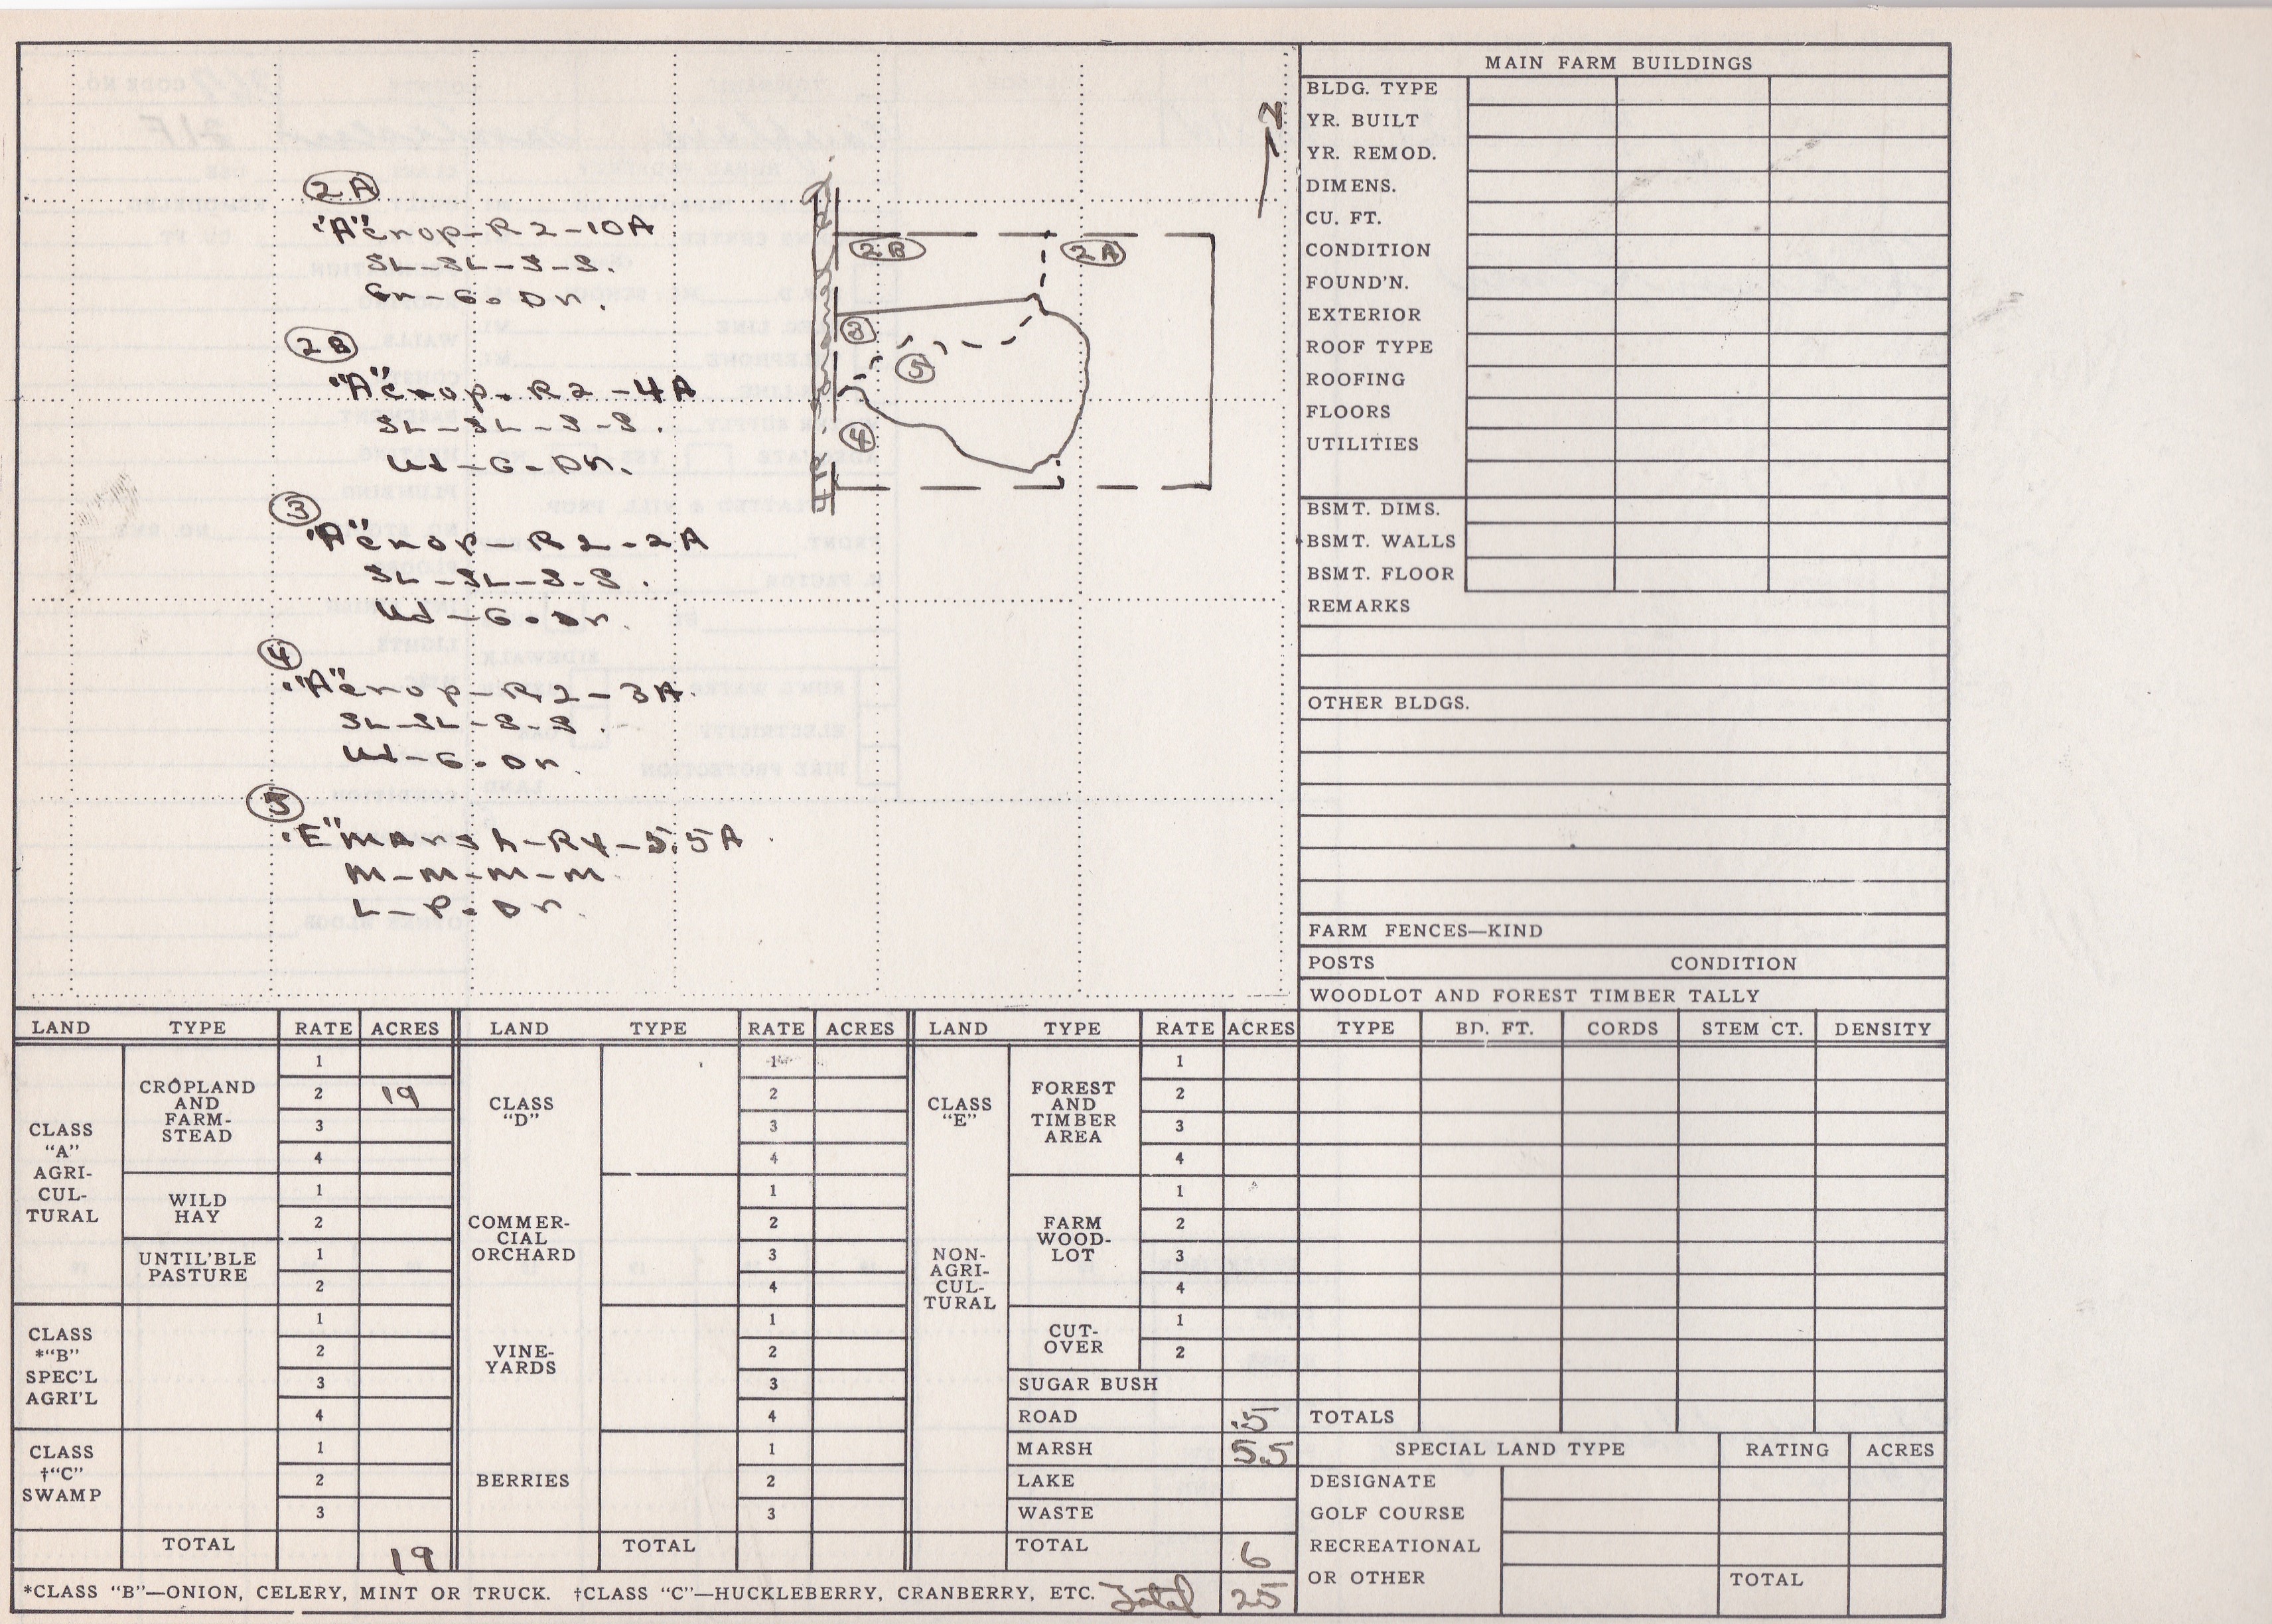 2A
"A" crop-R2-10A
SL-SL-S-S.
Gn-G-Dn.
2B
"A" crop-R2-4A
SL-SL-S-S.
Ud-G-Dn.
3
"A" crop-R2-2A
SL-SL-S-S.
Ud-G-Dn.
4
"A" crop-R2-3A.
SL-SL-S-S.
Ud-G-Dn.
5
"E" marsh-R4-5.5A
M-M-M-M
L-P-Dn.
N
2B 2A
3
5
4
MAIN FARM BUILDINGS
BLDG. TYPE
YR. BUILT
YR. REMOD.
DIMENS.
CU. FT.
CONDITION
FOUND'N.
EXTERIOR
ROOF TYPE
ROOFING
FLOORS
UTILITIES
BSMT. DIMS.
BSMT. WALLS
BSMT. FLOOR
REMARKS
OTHER BLDGS.
FARM FENCES—KIND
POSTS CONDITION
WOODLOT AND FOREST TIMBER TALLY
LAND TYPE RATE ACRES LAND TYPE RATE ACRES LAND TYPE RATE ACRES TYPE BD. FT. CORDS STEM CT. DENSITY
CLASS
"A"
AGRI-
CUL-
TURAL
CROPLAND
AND
FARM-
STEAD
1
2 19
3
4
WILD
HAY
1
2
UNTIL'BLE
PASTURE
1
2
CLASS
*"B"
SPEC'L
AGRI'L
1
2
3
4
CLASS
†"C"
SWAMP
1
2
3
TOTAL 19
CLASS
"D"
1
2
3
4
COMMER-
CIAL
ORCHARD
1
2
3
4
VINE-
YARDS
1
2
3
4
BERRIES
1
2
3
TOTAL
CLASS
"E"
NON-
AGRI-
CUL-
TURAL
FOREST
AND
TIMBER
AREA
1
2
3
4
FARM
WOOD-
LOT
1
2
3
4
CUT-
OVER
1
2
SUGAR BUSH
ROAD .5
MARSH 5.5
LAKE
WASTE
TOTAL 6
TOTALS
SPECIAL LAND TYPE RATING ACRES
DESIGNATE
GOLF COURSE
RECREATIONAL
OR OTHER
TOTAL
*CLASS "B"—ONION, CELERY, MINT OR TRUCK. †CLASS "C"—HUCKLEBERRY, CRANBERRY, ETC. Total 25